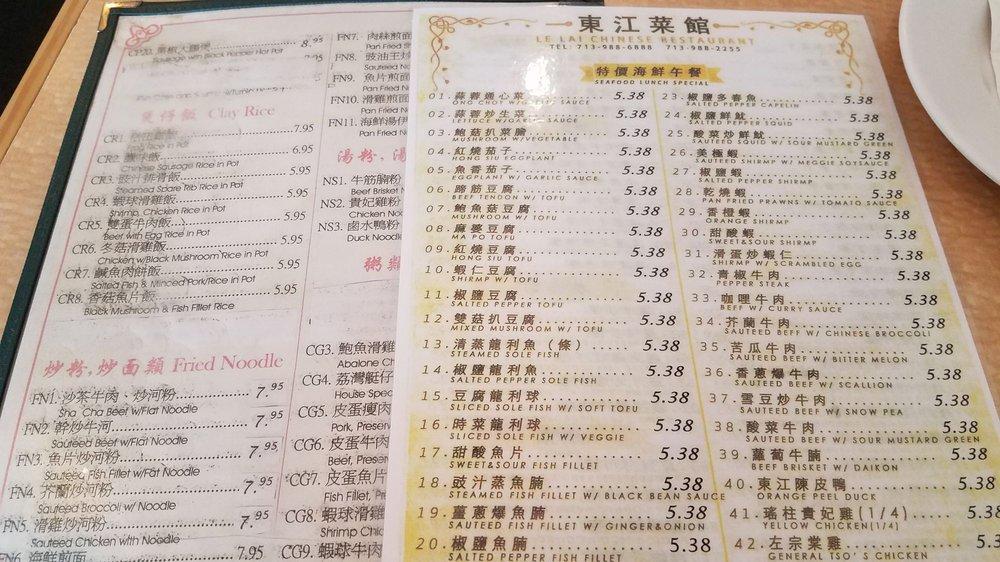 東江菜館
LE LAI CHINESE RESTAURANT
TEL: 713-988-6888 713-988-2255
特價海鮮午餐
SEAFOOD LUNCH SPECIAL
01. 蒜蓉通心菜 5.38
ONG CHOY W/GARLIC SAUCE
02. 蒜蓉炒生菜 5.38
LETTUCE W/GARLIC SAUCE
03. 鮑菇扒菜膽 5.38
MUSHROOM W/VEGETABLE
04. 紅燒茄子 5.38
HONG SIU EGGPLANT
05. 魚香茄子 5.38
EGGPLANT W/ GARLIC SAUCE
06. 蹄筋豆腐 5.38
BEEF TENDON W/ TOFU
07. 鮑魚菇豆腐 5.38
MUSHROOM W/ TOFU
08. 麻婆豆腐 5.38
MA PO TOFU
09. 紅燒豆腐 5.38
HONG SIU TOFU
10. 蝦仁豆腐 5.38
SHRIMP W/ TOFU
11. 椒鹽豆腐 5.38
SALTED PEPPER TOFU
12. 雙菇扒豆腐 5.38
MIXED MUSHROOM W/ TOFU
13. 清蒸龍利魚(條) 5.38
STEAMED SOLE FISH
14. 椒鹽龍利魚 5.38
SALTED PEPPER SOLE FISH
15. 豆腐龍利球 5.38
SLICED SOLE FISH W/ SOFT TOFU
16. 時菜龍利球 5.38
SLICED SOLE FISH W/ VEGGIE
17. 甜酸魚片 5.38
SWEET&SOUR FISH FILLET
18. 豉汁蒸魚腩 5.38
STEAMED FISH FILLET W/ BLACK BEAN SAUCE
19. 薑蔥爆魚腩 5.38
SAUTEED FISH FILLET W/ GINGER&ONION
20. 椒鹽魚腩 5.38
SALTED PEPPER FISH FILLET
23. 椒鹽多春魚 5.38
SALTED PEPPER CAPELIN
24. 椒鹽鮮魷 5.38
SALTED PEPPER SQUID
25. 酸菜炒鮮魷 5.38
SAUTEED SQUID W/ SOUR MUSTARD GREEN
26. 美極蝦 5.38
SAUTEED SHIRMP W/ MEGGIE SOYSAUCE
27. 椒鹽蝦 5.38
SALTED PEPPER SHIRMP
28. 乾燒蝦 5.38
PAN FRIED PRAWNS W/ TOMATO SAUCE
29. 香橙蝦 5.38
ORANGE SHIRMP
30. 甜酸蝦 5.38
SWEET&SOUR SHIRMP
31. 滑蛋炒蝦仁 5.38
SHIRMP W/ SCRAMBLED EGG
32. 青椒牛肉 5.38
PEPPER STEAK
33. 咖哩牛肉 5.38
BEEF W/ CURRY SAUCE
34. 芥蘭牛肉 5.38
SAUTEED BEEF W/ CHINESE BROCCOLI
35. 苦瓜牛肉 5.38
SAUTEED BEEF W/ BITTER MELON
36. 香蔥爆牛肉 5.38
SAUTEED BEEF W/ SCALLION
37. 雪豆炒牛肉 5.38
SAUTEED BEEF W/ SNOW PEA
38. 酸菜牛肉 5.38
SAUTEED BEEF W/ SOUR MUSTARD GREEN
39. 蘿蔔牛腩 5.38
BEEF BRISKET W/ DAIKON
40. 東江陳皮鴨 5.38
ORANGE PEEL DUCK
41. 瑤柱貴妃雞(1/4) 5.38
YELLOW CHICKEN(1/4)
42. 左宗棠雞 5.38
GENERAL TSO'S CHICKEN
8.95
Sausage with Black Pepper Hot Pot
煲仔飯 Clay Rice
CR1. 7.95
Rice in Pot
CR2. 臘味飯 5.95
Chinese Sausage Rice in Pot
CR3. 豉汁排骨飯 5.95
Steamed Spare Trib Rice in Pot
CR4. 蝦球滑雞飯 5.95
Shrimp, Chicken Rice in Pot
CR5. 雙蛋牛肉飯 5.95
Beef with Egg Rice in Pot
CR6. 冬菇滑雞飯 5.95
Chicken w/Black Mushroom Rice in Pot
CR7. 鹹魚肉餅飯 5.95
Salted Fish & Minced Pork/Rice in Pot
CR8. 香菇魚片飯 5.95
Black Mushroom & Fish Fillet Rice
炒粉,炒面類 Fried Noodle
FN1. 沙茶牛肉、炒河粉 7.95
Sha Cha Beef w/Flat Noodle
FN2. 幹炒牛河 7.95
Sauteed Beef w/Flat Noodle
FN3. 魚片炒河粉 7.95
Sauteed Fish Fillet w/Fat Noodle
FN4. 芥蘭炒河粉 7.95
Sauteed Broccoli w/ Noodle
FN5. 滑雞炒河粉 7.95
Sauteed Chicken with Noodle
FN6. 海鮮煎面 7.95
FN7. 肉絲煎面
Pan Fried Sh
FN8. 豉油王炒
Sauteed No
FN9. 魚片煎面
Pan Fried No
FN10. 滑雞煎面
Pan Fried No
FN11. 海鮮湯伊
Pan Fried No
湯粉,湯
NS1. 牛筋腩粉
Beef Brisket N
NS2. 貴妃雞粉
Chicken Noo
NS3. 鹵水鴨粉
Duck Noodle
粥類
CG3. 鮑魚滑雞
Abalone Ch
CG4. 荔灣艇仔
House Special
CG5. 皮蛋瘦肉
Pork, Preserv
CG6. 皮蛋牛肉
Beef, Preser
CG7. 皮蛋魚片
Fish Fillet, Pre
CG8. 蝦球滑雞
Shrimp Chic
CG9. 蝦球牛肉